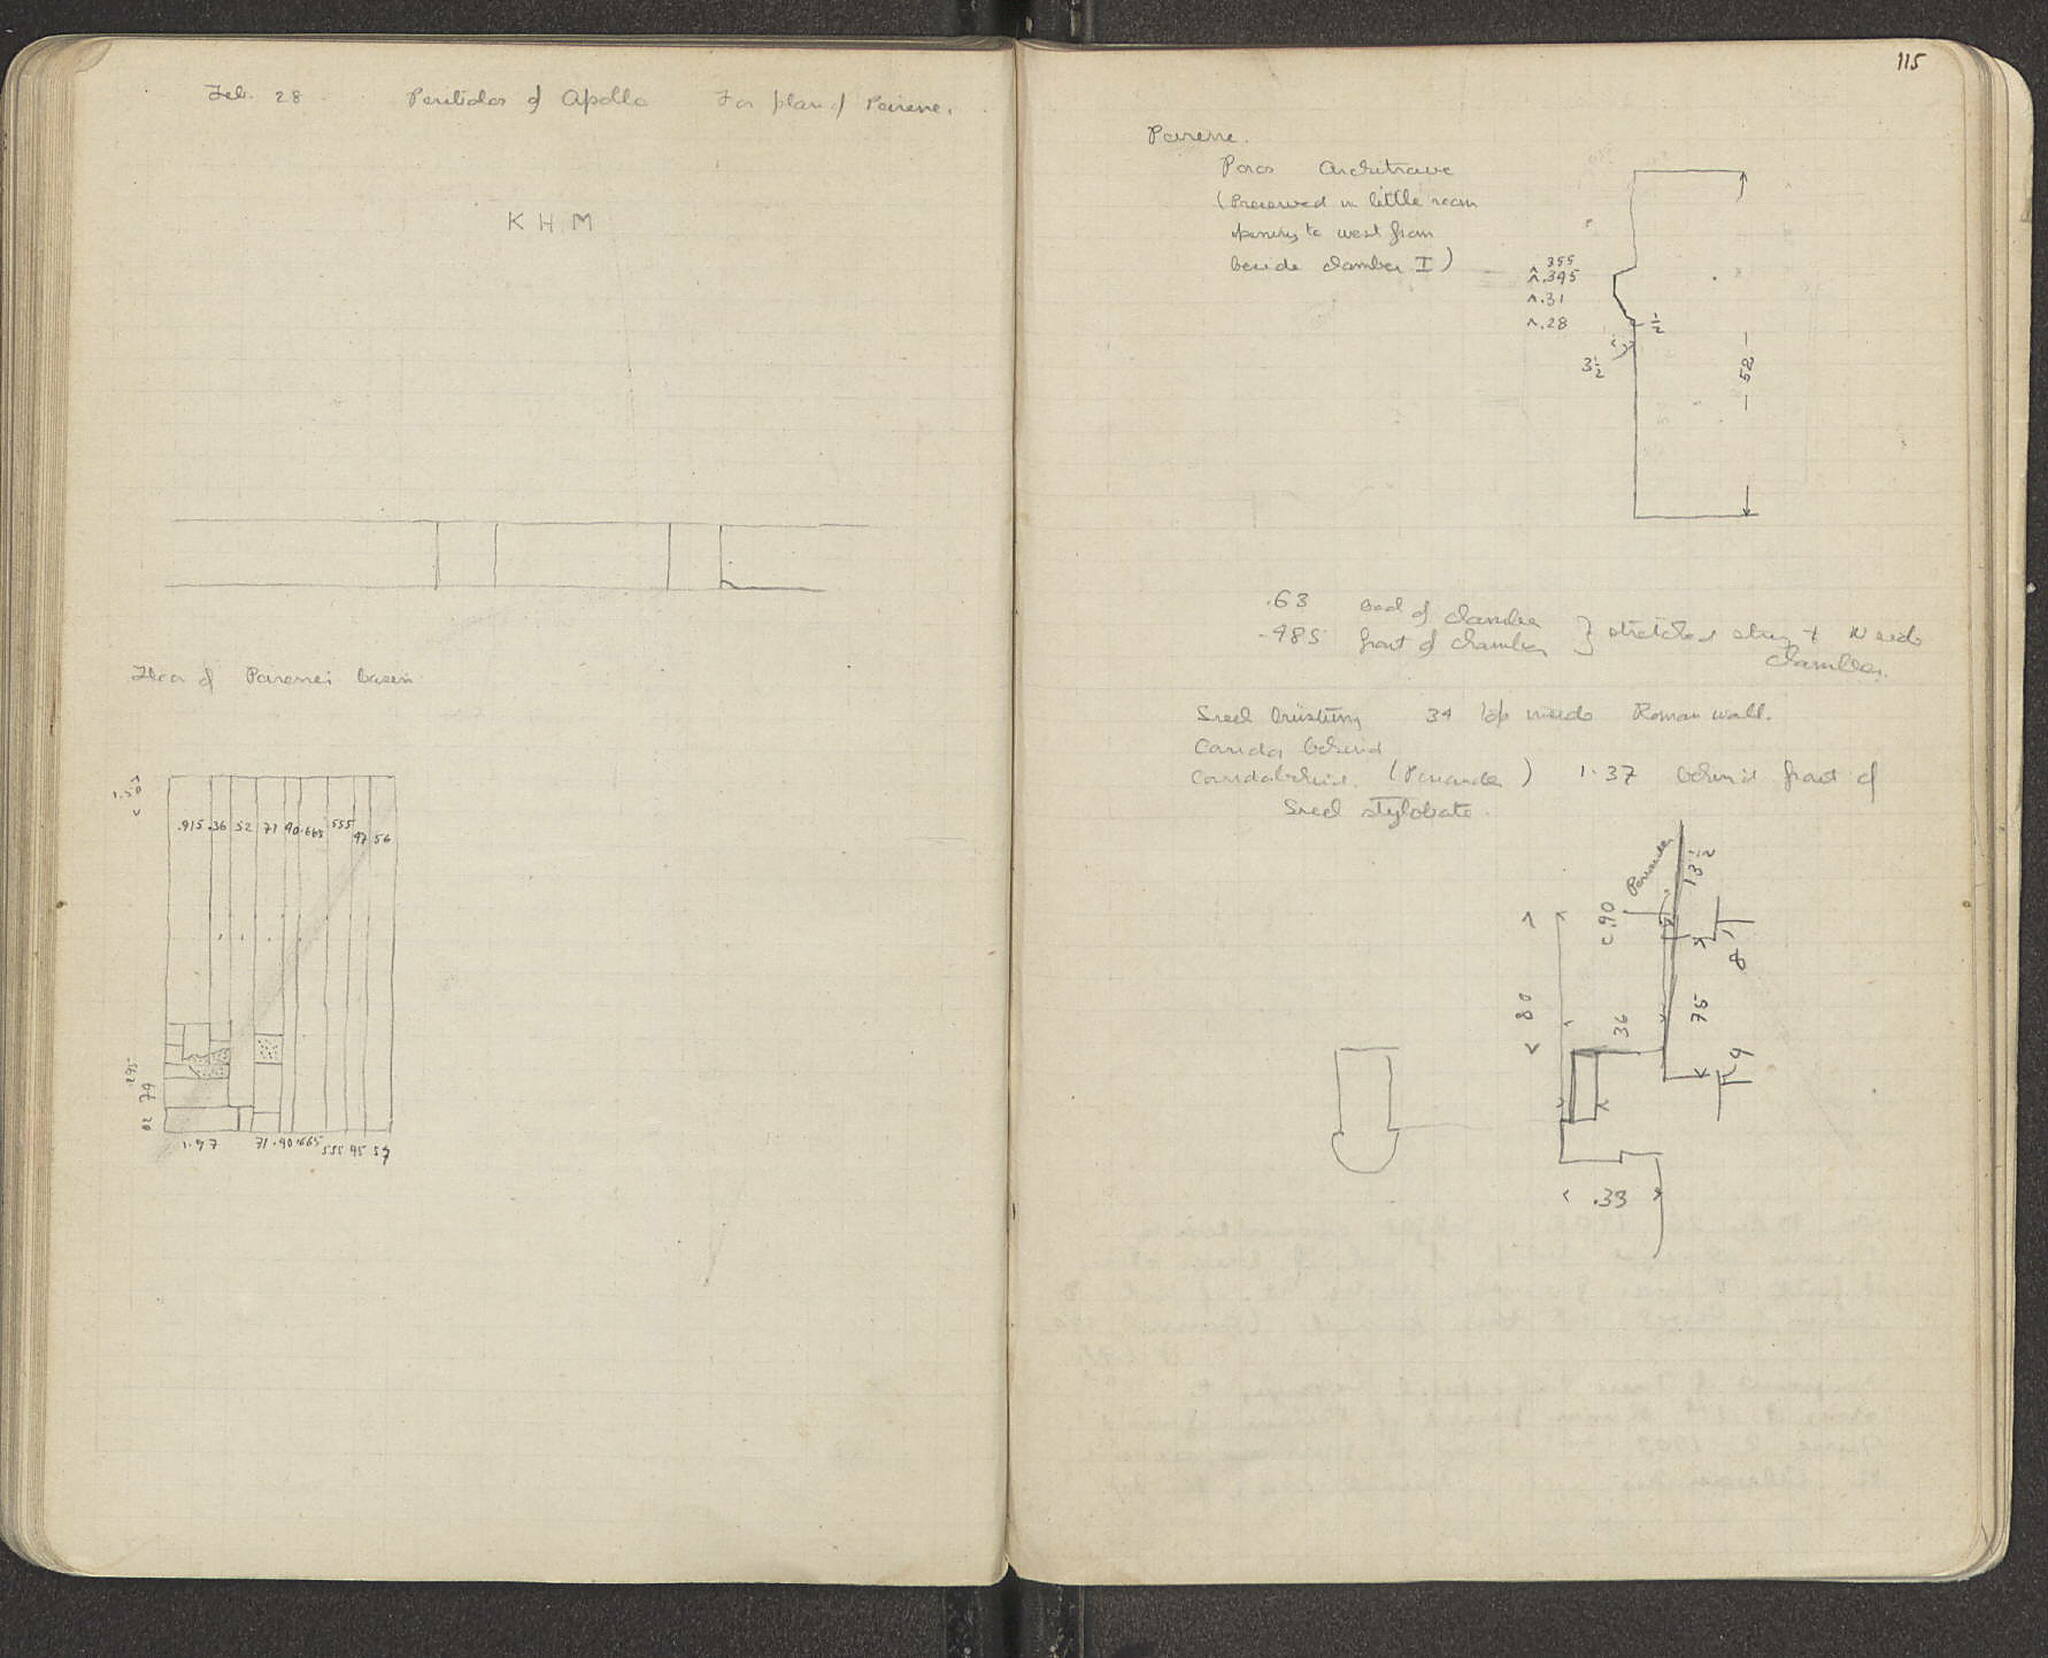 Feb. 28. Peribolos of Apollo For plan of Peirene.
K H M
Floor of Peirene basin
1.50
.915 .36 52 71 90 .665 555 97 56
.295
79
02
1.97 71 .90 .665 555 95 57
115
Peirene.
Poros Architrave
(Preserved in little room
opening to west from
beside chamber I)
355
^.395
^.31
^.28
1/2
3 1/2
52
.63 back of chamber
.985 front of chamber } stretched string W side
chamber.
Greek 34 top inside Roman wall.
Corridor behind
(Periander) 1.37 behind front of
Greek stylobate.
Periander
13 1/2
c.90
8
80
36
75
9
.33